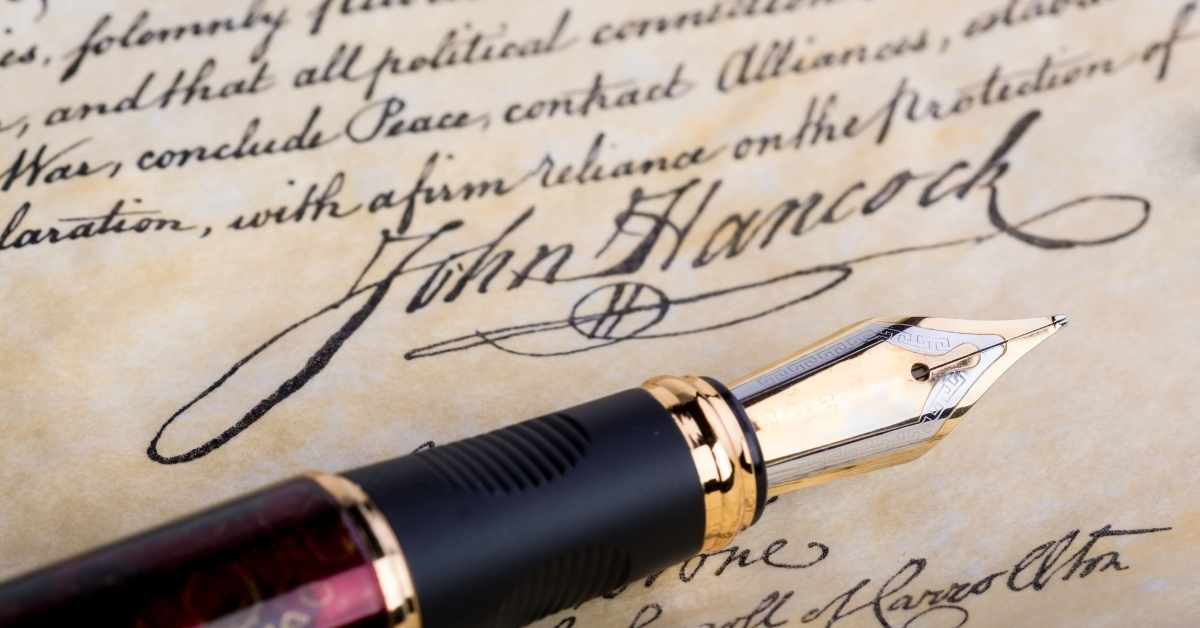 , solemnly
, and that all political
War, conclude Peace, contract Alliances,
laration, with a firm reliance on the Protection of
John Hancock
H
one
of Carrollton